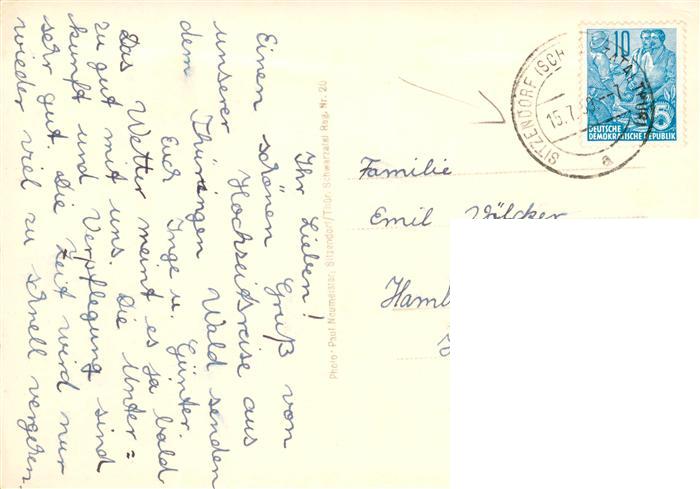 Ihr Lieben!
Einen schönen Gruß von
unserer Hochzeitsreise aus
dem Thüringen Wald senden
Euch Inge u. Günter.
Das Wetter meint es ja bald
zu gut mit uns. Die Unter=
kunft und Verpflegung sind
sehr gut. Die Zeit wird nur
wieder viel zu schnell vergehen.
Photo: Paul Neumeister, Sitzendorf/Thür. Schwarzatal Reg. Nr. 20
SITZENDORF (SCH
15.7.
a
10
5
DEUTSCHE
DEMOKRATISCHE REPUBLIK
Familie
Emil Völcker
Hamb